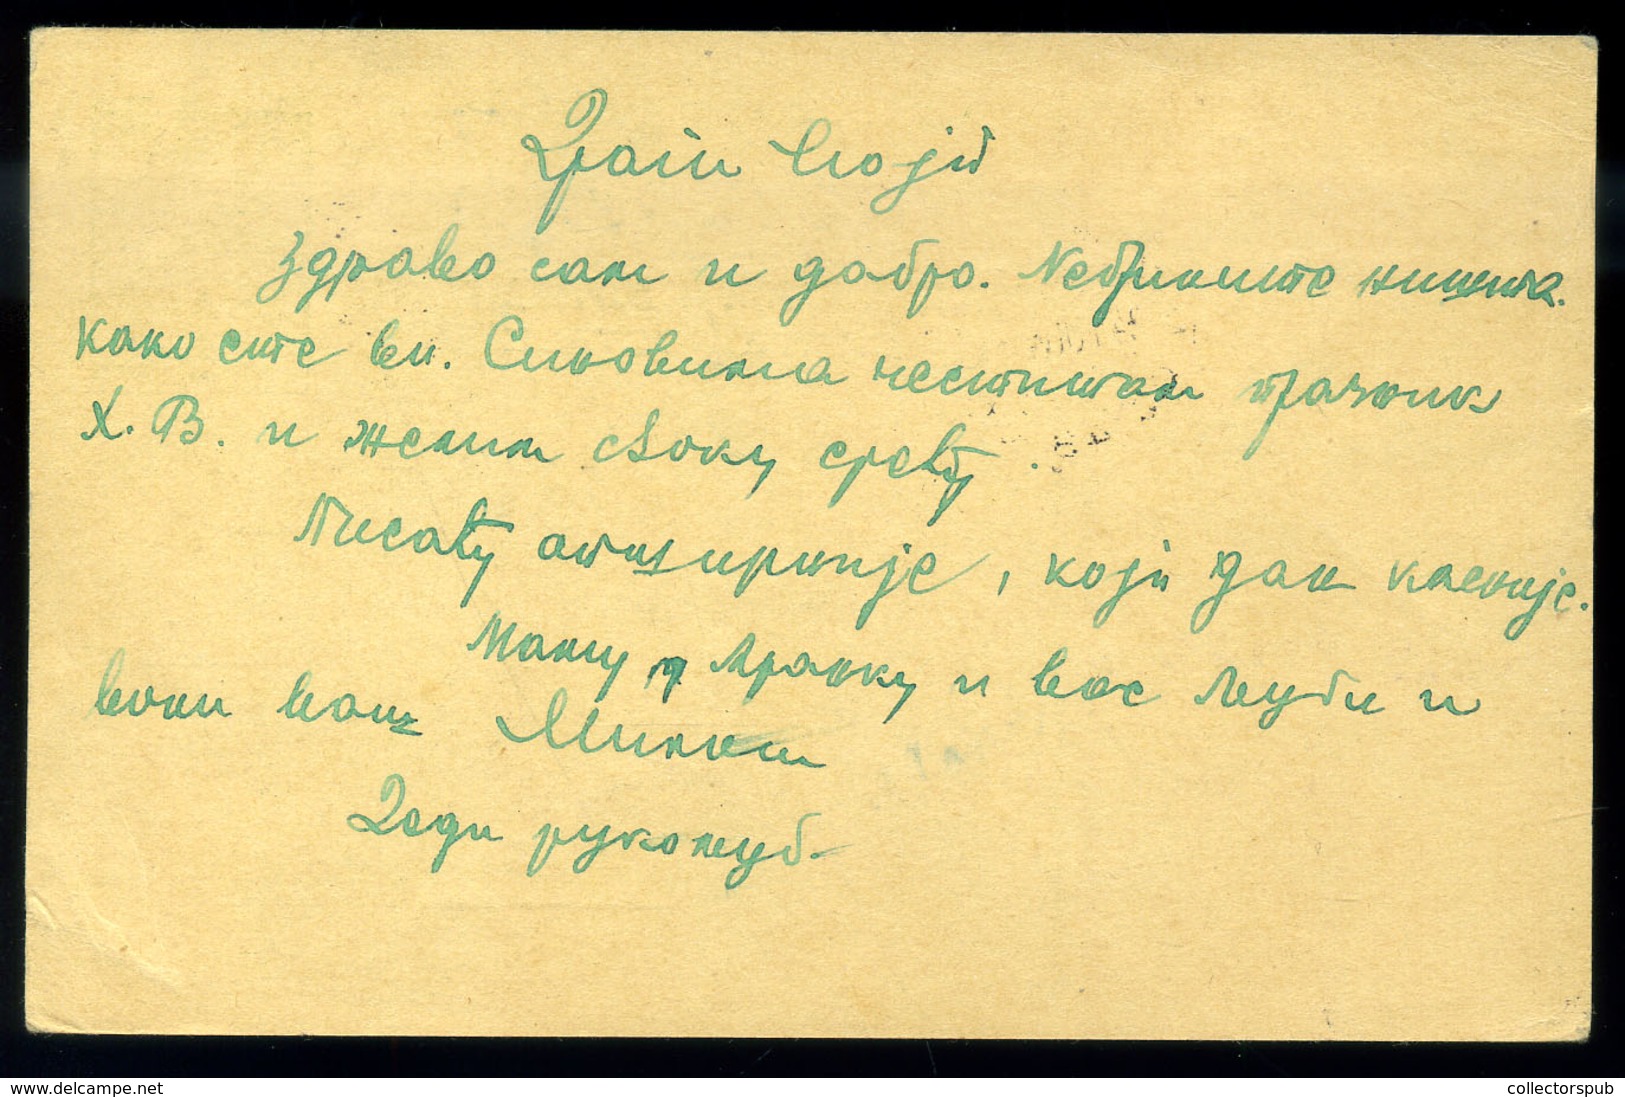 Драги моји
Здраво сам и добро. Небрините ништа.
Како сте ви. Синовима честитам празник
Х. В. и желим свяку срећу.
Писаћу опширније, који дан касније.
Мању и Мранку и вас љуби и
воли ваш Милош
Деди рукољуб.
delcampe.net
collectorspub